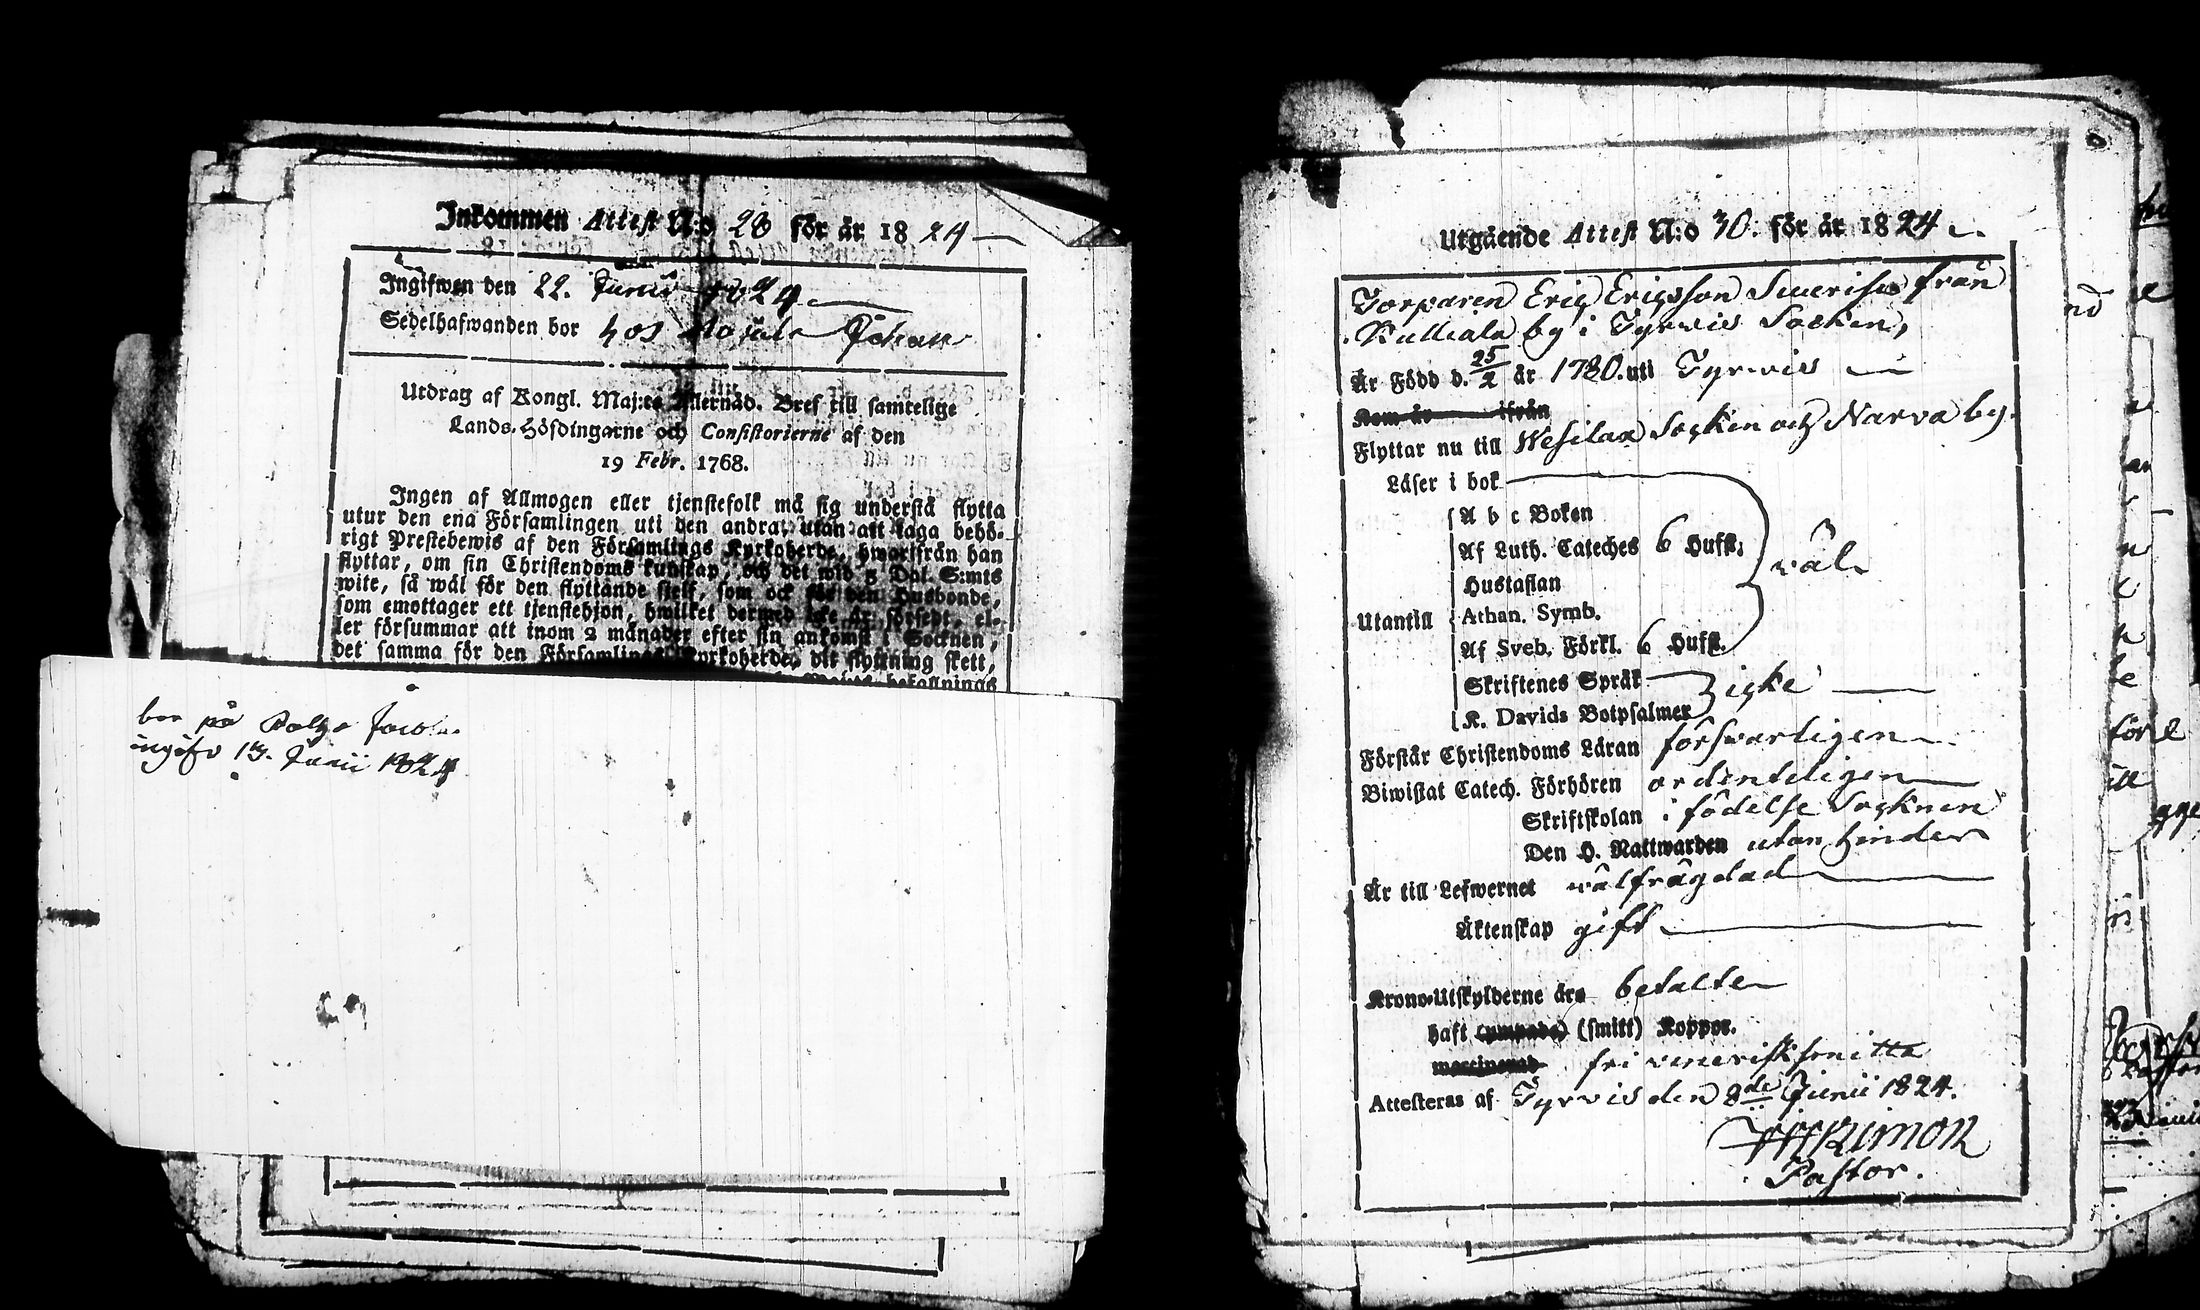 Inkommen Attest N:o 28 för år 1824
Ingifwen den 22. Junii 1824.
Sedelhafwanden bor hos Johan
Utdrag af Kongl. Maj:ts Allernåd. Bref till samtelige
Lands-Höfdingarne och Consistorierne af den
19 Febr. 1768.
Ingen af Allmogen eller tjenstefolk må sig understå flytta
utur den ena Församlingen uti den andra, utan att taga behö-
rigt Prestebewis af den Församlings Kyrkoherde, hwarifrån han
flyttar, om sin Christendoms kunskap, och det wid 5 Dal. S:mts
wite, så wäl för den flyttande sjelf, som ock för den Husbonde,
som emottager ett tjenstehjon, hwilket dermed icke är försedt, el-
ler försummar att inom 2 månader efter sin ankomst i Socknen,
det samma för den Församlings Kyrkoherde, dit flyttning skett,
bor på
ingifv 13. Junii 1824
Utgående Attest N:o 30. för år 1824.
Torparen Eric Ericsson från
by i Tyrvis Socken,
Är Född d. 25/2 år 1780. uti Tyrvis
Kom år ifrån
Flyttar nu till Wesilax Socken och Narva by.
Läser i bok
A b c Boken
Af Luth. Cateches 6 Hufst.
wäl
Hustaflan
Utantill Athan. Symb.
Af Sveb. Förkl. 6 Hufst.
Skriftenes Språk
icke
K. Davids Botpsalmer
Förstår Christendoms Läran försvarligen
Biwistat Catech. Förhören ordenteligen
Skriftskolan i födelse Socknen
Den H. Nattwarden utan hinder
Är till Lefwernet wälfrägdad
Äktenskap gift
Krono-Utskylderne äro betalte
haft (smitt) Koppor.
fri venerisk smitta
Attesteras af Tyrvis den 8de Junii 1824.
Pastor.